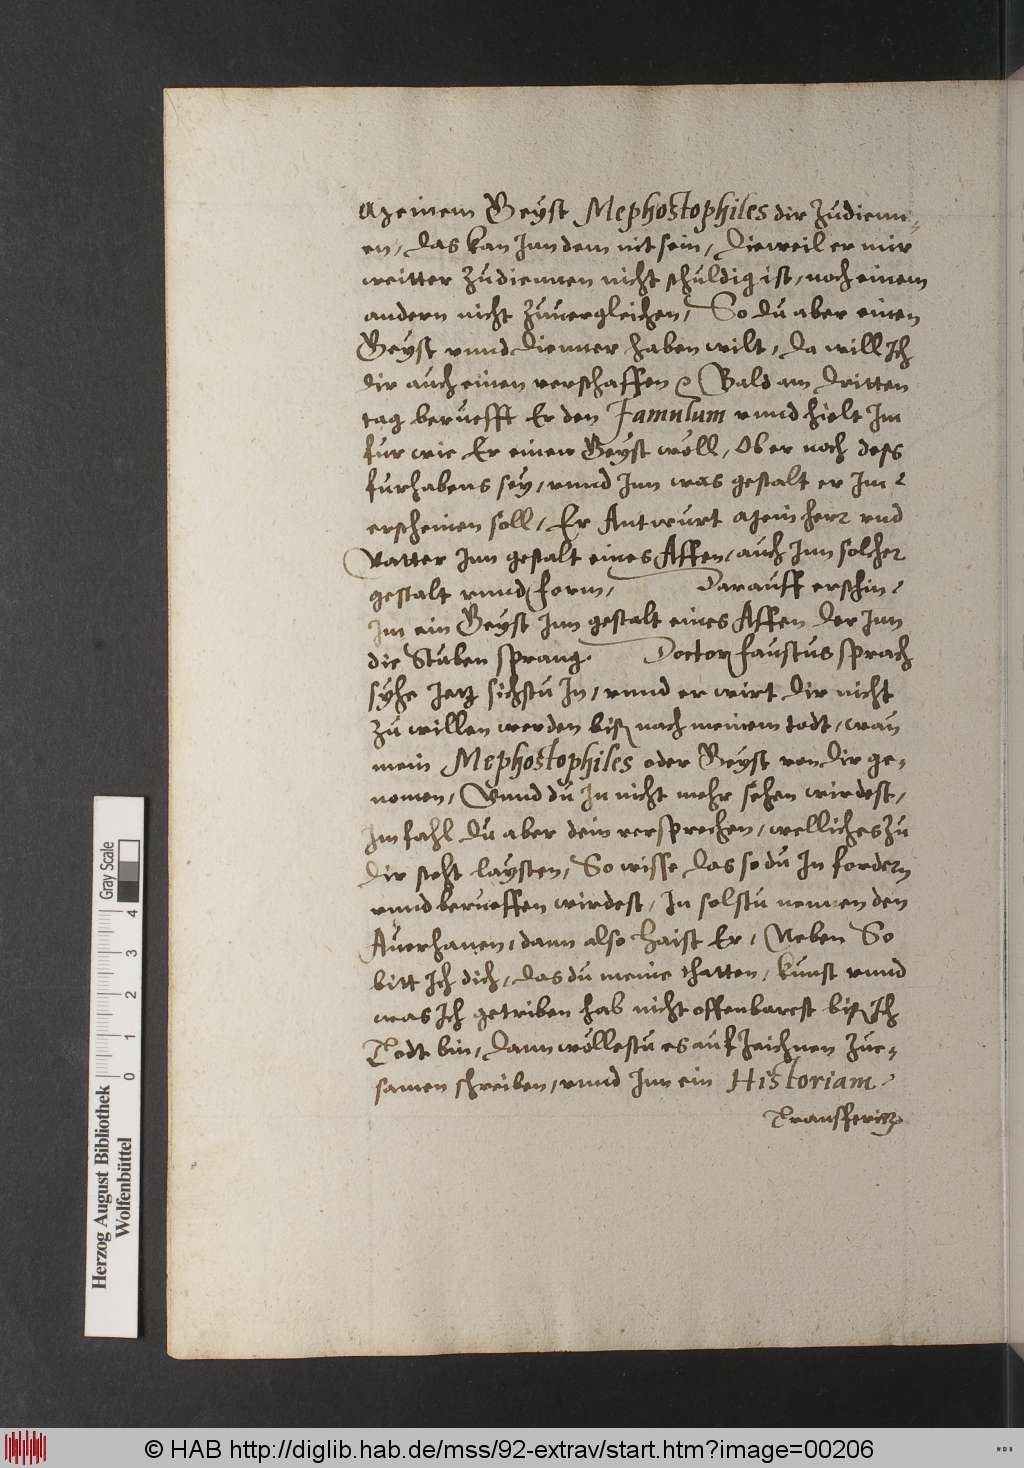 Meinem Geyst Mephostophiles dir zudienn-
en, das kan Jnn dem nit sein, Dieweil er mir
weitter zudiennen nicht schuldig ist, noch einem
andern nicht zuuergleichen, So du aber einen
Geyst vnnd Dienner haben wilt, da will Ich
dir auch einen verschaffen Bald am dritten
tag beruefft Er den Famulum vnnd hielt Im
fur wie Er einen Geyst wöll, Ob er noch dess
furhabens sey, vnnd Jnn was gestalt er Im
erscheinen soll, Er Antwurt Mein herr vnd
Vatter Jnn gestalt eines Affen, auch Jnn solcher
gestalt vnnd form, Darauff erschin
Im ein Geyst Jnn gestalt eines Affen der Jnn
die Stuben sprang. Doctor faustus sprach
syhe Jetz sichstu In, vnnd er wirt dir nicht
zu willen werden biß nach meinem todt, wan
mein Mephostophiles oder Geyst von dir ge-
nomen, Vnnd du In nicht mehr sehen wirdest,
Im fahl du aber dein versprechen, welliches zu
dir steht laysten, So wisse das so du In fordern
vnnd berueffen wirdest, In solstu nennen den
Auerhanen, dann also haist Er, Neben So
bitt Ich dich, das du meine thatten, kunst vnnd
was Ich getriben hab nicht offenbarest biß Ich
Todt bin, Dann wöllestu es auf zaichnen zue-
samen schreiben, vnnd Jnn ein Historiam
Transferirn
Herzog August Bibliothek
Wolfenbüttel
Gray Scale
0 1 2 3 4
© HAB http://diglib.hab.de/mss/92-extrav/start.htm?image=00206
WDB